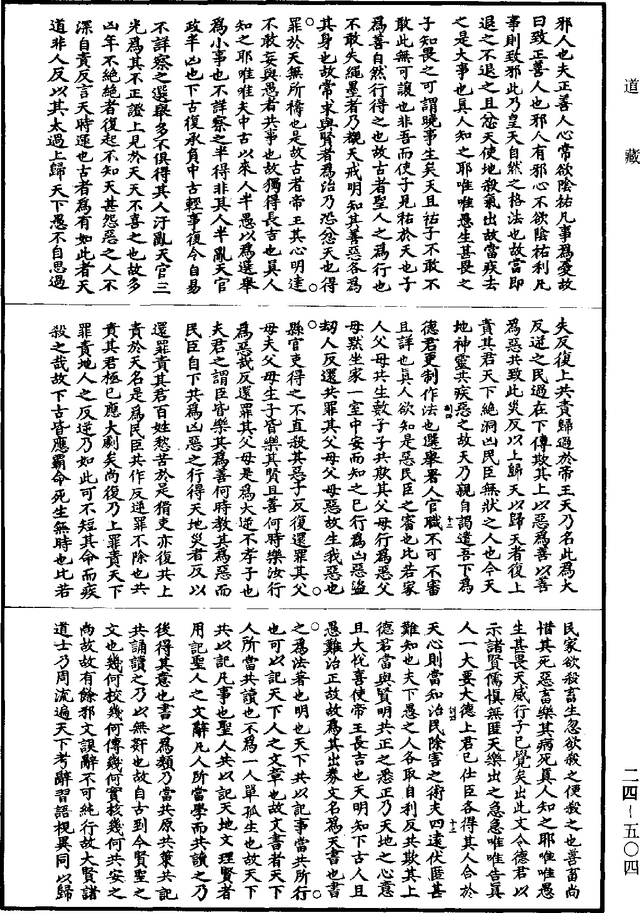 道藏
二四—五〇四
邪人也夫正善人心常欲陰祐凡事爲憂故
曰致正善人也邪人有邪心不欲陰祐利凡
事則致邪此乃皇天自然之格法也故當即
退之不退之且忿天使地殺氣出故當疾去
之是大事也真人知之耶唯唯愚生甚畏之
子知畏之可謂曉事生矣天且祐子不敢不
敢此無可讓也非吾而使子見祐於天也子
爲善自然行得之也故古者聖人之爲行也
不敢失繩墨者乃覩天戒明知其善惡各爲
其身也故常求與賢者爲治乃恐忿天也得
罪於天無所禱也是故古者帝王其心明達
不敢妄與愚者共事也故獨得長吉也真人
知之耶唯唯夫中古以來人半愚以爲選舉
爲小事也不詳察之半得非其人半亂天官
政半凶也下古復承負中古輕事復令自易
不詳察之選舉多不俱得其人汙亂天官三
光爲其不正證上見於天天不喜之也故多
凶年不絶絶者復起不知天甚怨惡之人不
深自責反言天時運也古者爲有如此者天
道非人反以其太過上歸天下愚不自思過
失反復上共責歸過於帝王天乃名此爲大
反逆之民過在下傳欺其上以惡爲善以善
爲惡共致此災反以上歸天以歸天者復上
責其君天下絶洞凶民臣無狀之人也今天
地神靈共疾惡之故天乃親自謁遣吾下爲
德君更制作法也選舉署人官職不可不審
且詳也真人欲知是惡民臣之審也比若家
人父母共生數子子共欺其父母行爲惡父
母默坐家一室中安而知之已行爲凶惡盜
劫人反還共罪其父母父母惡故生我惡也
縣官吏得之不直殺其惡子反復還罪其父
母夫父母生子皆樂其賢且善何時樂汝行
爲惡哉反還罪其父母是爲大逆不孝子也
夫君之謂臣皆樂其爲善何時教其爲惡而
民臣自下共爲凶惡之行得天地災者反以
還罪責其君百姓愁苦於是猾吏亦復共上
責於天名是爲民臣共作反逆罪不除也共
責其君極已應大劇矣尚復乃上罪責天下
罪責地人之反逆乃如此可不短其命而疾
殺之哉故下古皆應霸命死生無時也比若
民家欲殺畜生忽欲殺之便殺之也善畜尚
惜其死惡畜樂其病死真人知之耶唯唯愚
生甚畏天威行子已覺矣出此文令德君以
示諸賢儒慎無匿天樂出之急急唯唯告真
人一大要大德上君已仕臣各得其人合於
天心則當知治民除害之術夫四遠伏匿甚
難知也夫下愚之人各取自利反共欺其上
德君當與賢明共正之悉正乃天地之心意
且大悅喜使帝王長吉也天明知下古人且
愚難治正故故爲其出券文名爲天書也書
之爲法著也明也天下共以記事當共所行
也可以記天下人之文章也故文書者天下
人所當共讀也不爲一人單孤生也故天下
共以記凡事也聖人共以記天地文理賢者
用記聖人之文辭凡人所當學而共讀之乃
後得其意也書之爲類乃當共原共策共記
共誦讀之乃以無姧也故自古到今賢聖之
文也幾何校幾何傳幾何實核幾何共安之
尚故故有餘邪文誤辭不可純行故大賢諸
道士乃周流遍天下考辭習語視異同以歸